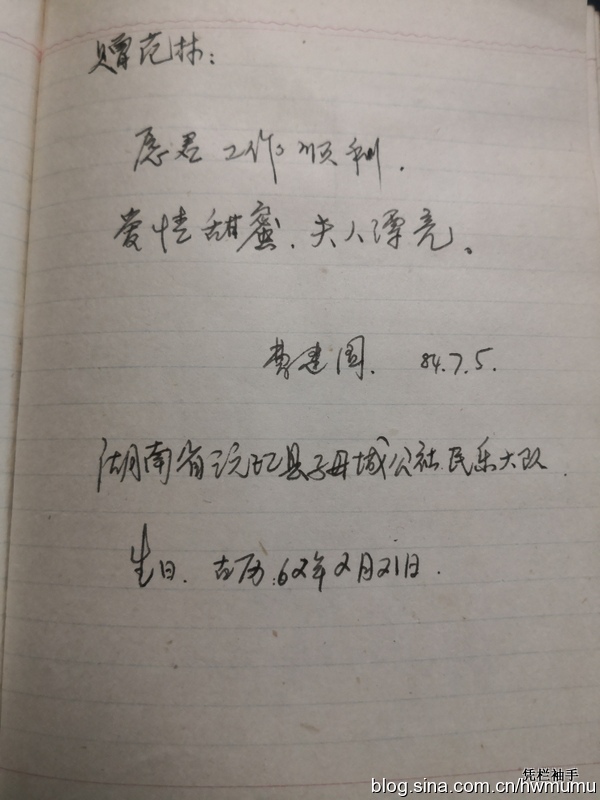 赠范林:
愿君工作顺利.
爱情甜蜜、夫人漂亮。
曹建国. 84.7.5.
湖南省沅江县子母城公社民乐大队.
生日. 古历:62年2月21日.
凭栏袖手
blog.sina.com.cn/hwmumu